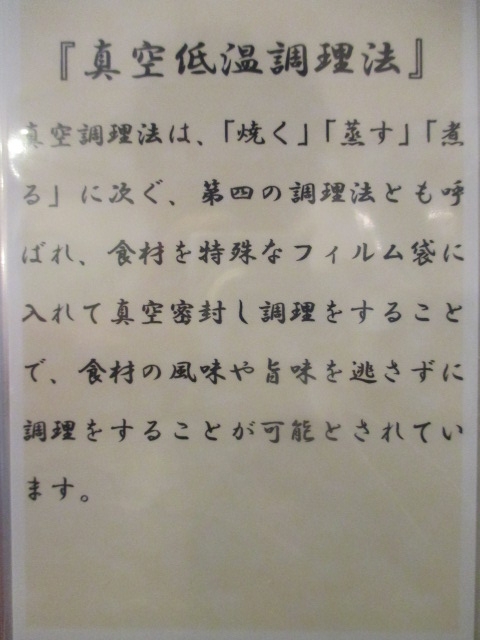 『真空低温調理法』
真空調理法は、「焼く」「蒸す」「煮
る」に次ぐ、第四の調理法とも呼
ばれ、食材を特殊なフィルム袋に
入れて真空密封し調理をすること
で、食材の風味や旨味を逃さずに
調理をすることが可能とされてい
ます。